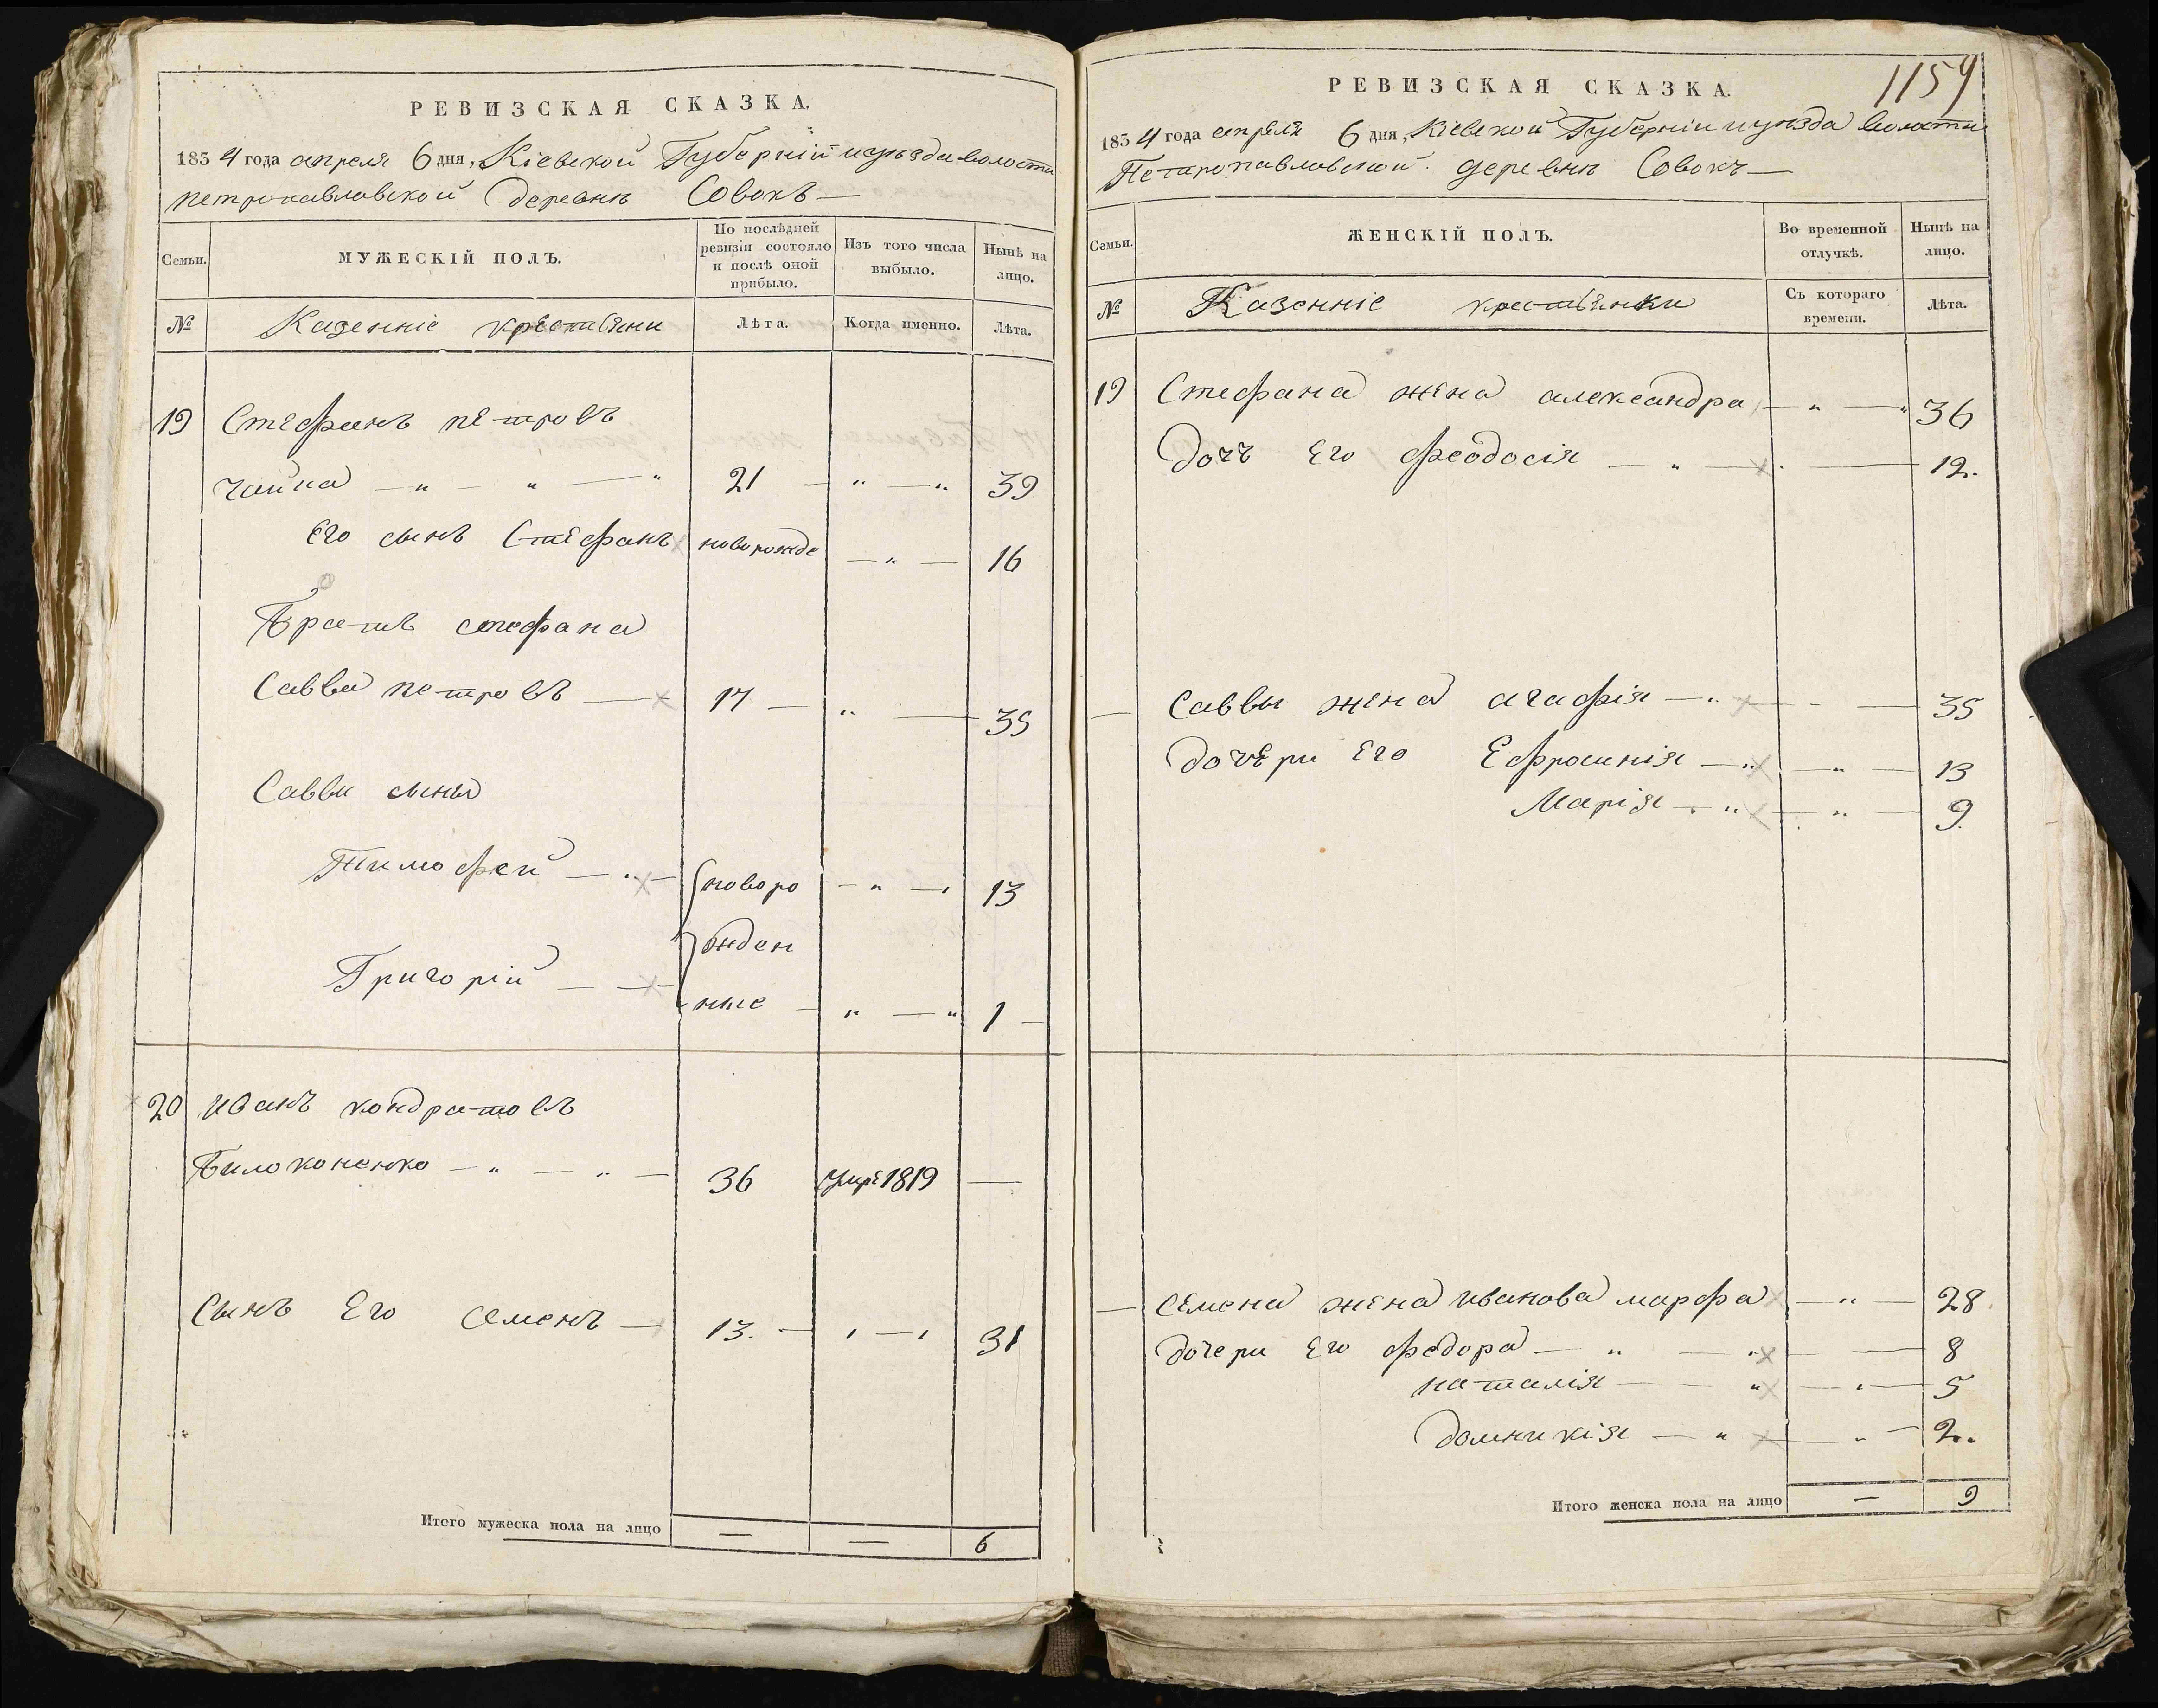 РЕВИЗСКАЯ СКАЗКА.
1834 года апреля 6 дня, Кіевской Губерніи иуѣзда волости
петропавловской деревнѣ Совокъ —
Семьи.
МУЖЕСКІЙ ПОЛЪ.
По послѣдней ревизіи состояло и послѣ оной прибыло.
Изъ того числа выбыло.
Нынѣ на лицо.
№
Казенніе крестьяни
Лѣта.
Когда именно.
Лѣта.
19 Стефанъ петровъ
Чайка — " — " — " 21 — " — " 39
Его сынъ Стефанъ новорожде — " — 16
Братъ стефана
Савва петровъ — 17 — " — 35
Саввы сыны
Тимофей — " — новоро — " — 13
жден
Григорій — — ные — " — " 1 —
20 иванъ кондратовъ
Билоконенко — " — " — 36 умре 1819 —
Сынъ Его Семенъ — 13. — " — " 31
Итого мужеска пола на лицо — — 6
1159
РЕВИЗСКАЯ СКАЗКА.
1834 года апрѣля 6 дня, Кіевской Губерніи иуѣзда волости
Петропавловской деревнѣ Совокъ —
Семьи.
ЖЕНСКІЙ ПОЛЪ.
Во временной отлучкѣ.
Нынѣ на лицо.
№
Казенніе крестьянки
Съ котораго времени.
Лѣта.
19 Стефана жена александра — " — " 36
Дочь Его феодосія — " — — 12.
— Саввы жена агафія — " — - — 35
Дочери Его Ефросинія — " — " — 13
Марія — " — " — 9.
— Семена жена иванова марфа — " — 28
Дочери Его федора — " — " — — 8
наталія — — " — " — 5
домникія — " — " — 2.
Итого женска пола на лицо — 9